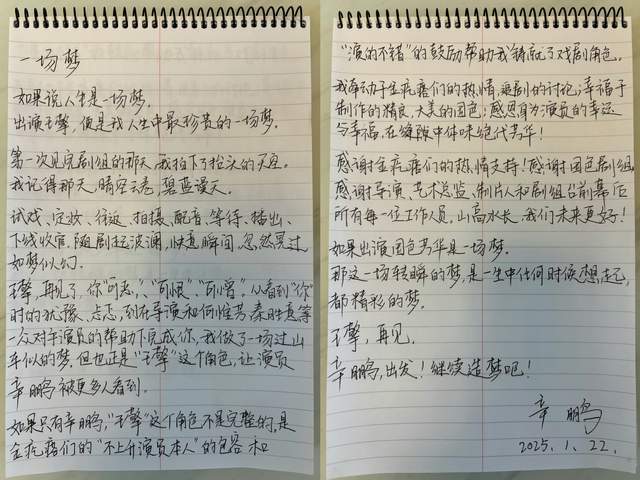 一场梦
如果说人生是一场梦,
出演王擎,便是我人生中最珍贵的一场梦。
第一次见完剧组的那天,我拍下了抬头的天空。
我记得那天,晴空云卷,碧蓝漫天。
试戏、定妆、往返、拍摄、配音、等待、播出、
下线收官,随剧起波澜,快意瞬间,忽然晃过
如梦似幻。
王擎,再见了,你“可恶”、“可恨”、“可憎”。从看到“你”
时的犹豫、忐忑,到在导演和何惟芳、秦胜意等
一众对手演员的帮助下完成你,我做了一场过山
车似的梦。但也正是“王擎”这个角色,让演员
辛鹏被更多人看到。
如果只有辛鹏,“王擎”这个角色不是完整的,是
金疙瘩们的“不上升演员本人”的包容和
“演的不错”的鼓励帮助我铸就了戏剧角色。
我牵动于金疙瘩们的热情,乘剧的讨论;幸福于
制作的精良,大美的国色;感恩身为演员的幸运
与幸福,在缝隙中体味绝代芳华!
感谢金疙瘩们的热情支持!感谢国色剧组,
感谢导演、艺术总监、制片人和剧组台前幕后
所有每一位工作人员,山高水长,我们未来更好!
如果出演国色芳华是一场梦。
那这一场转瞬的梦,是一生中任何时候想起,
都精彩的梦。
王擎,再见。
辛鹏,出发!继续造梦吧!
辛鹏
2025.1.22.